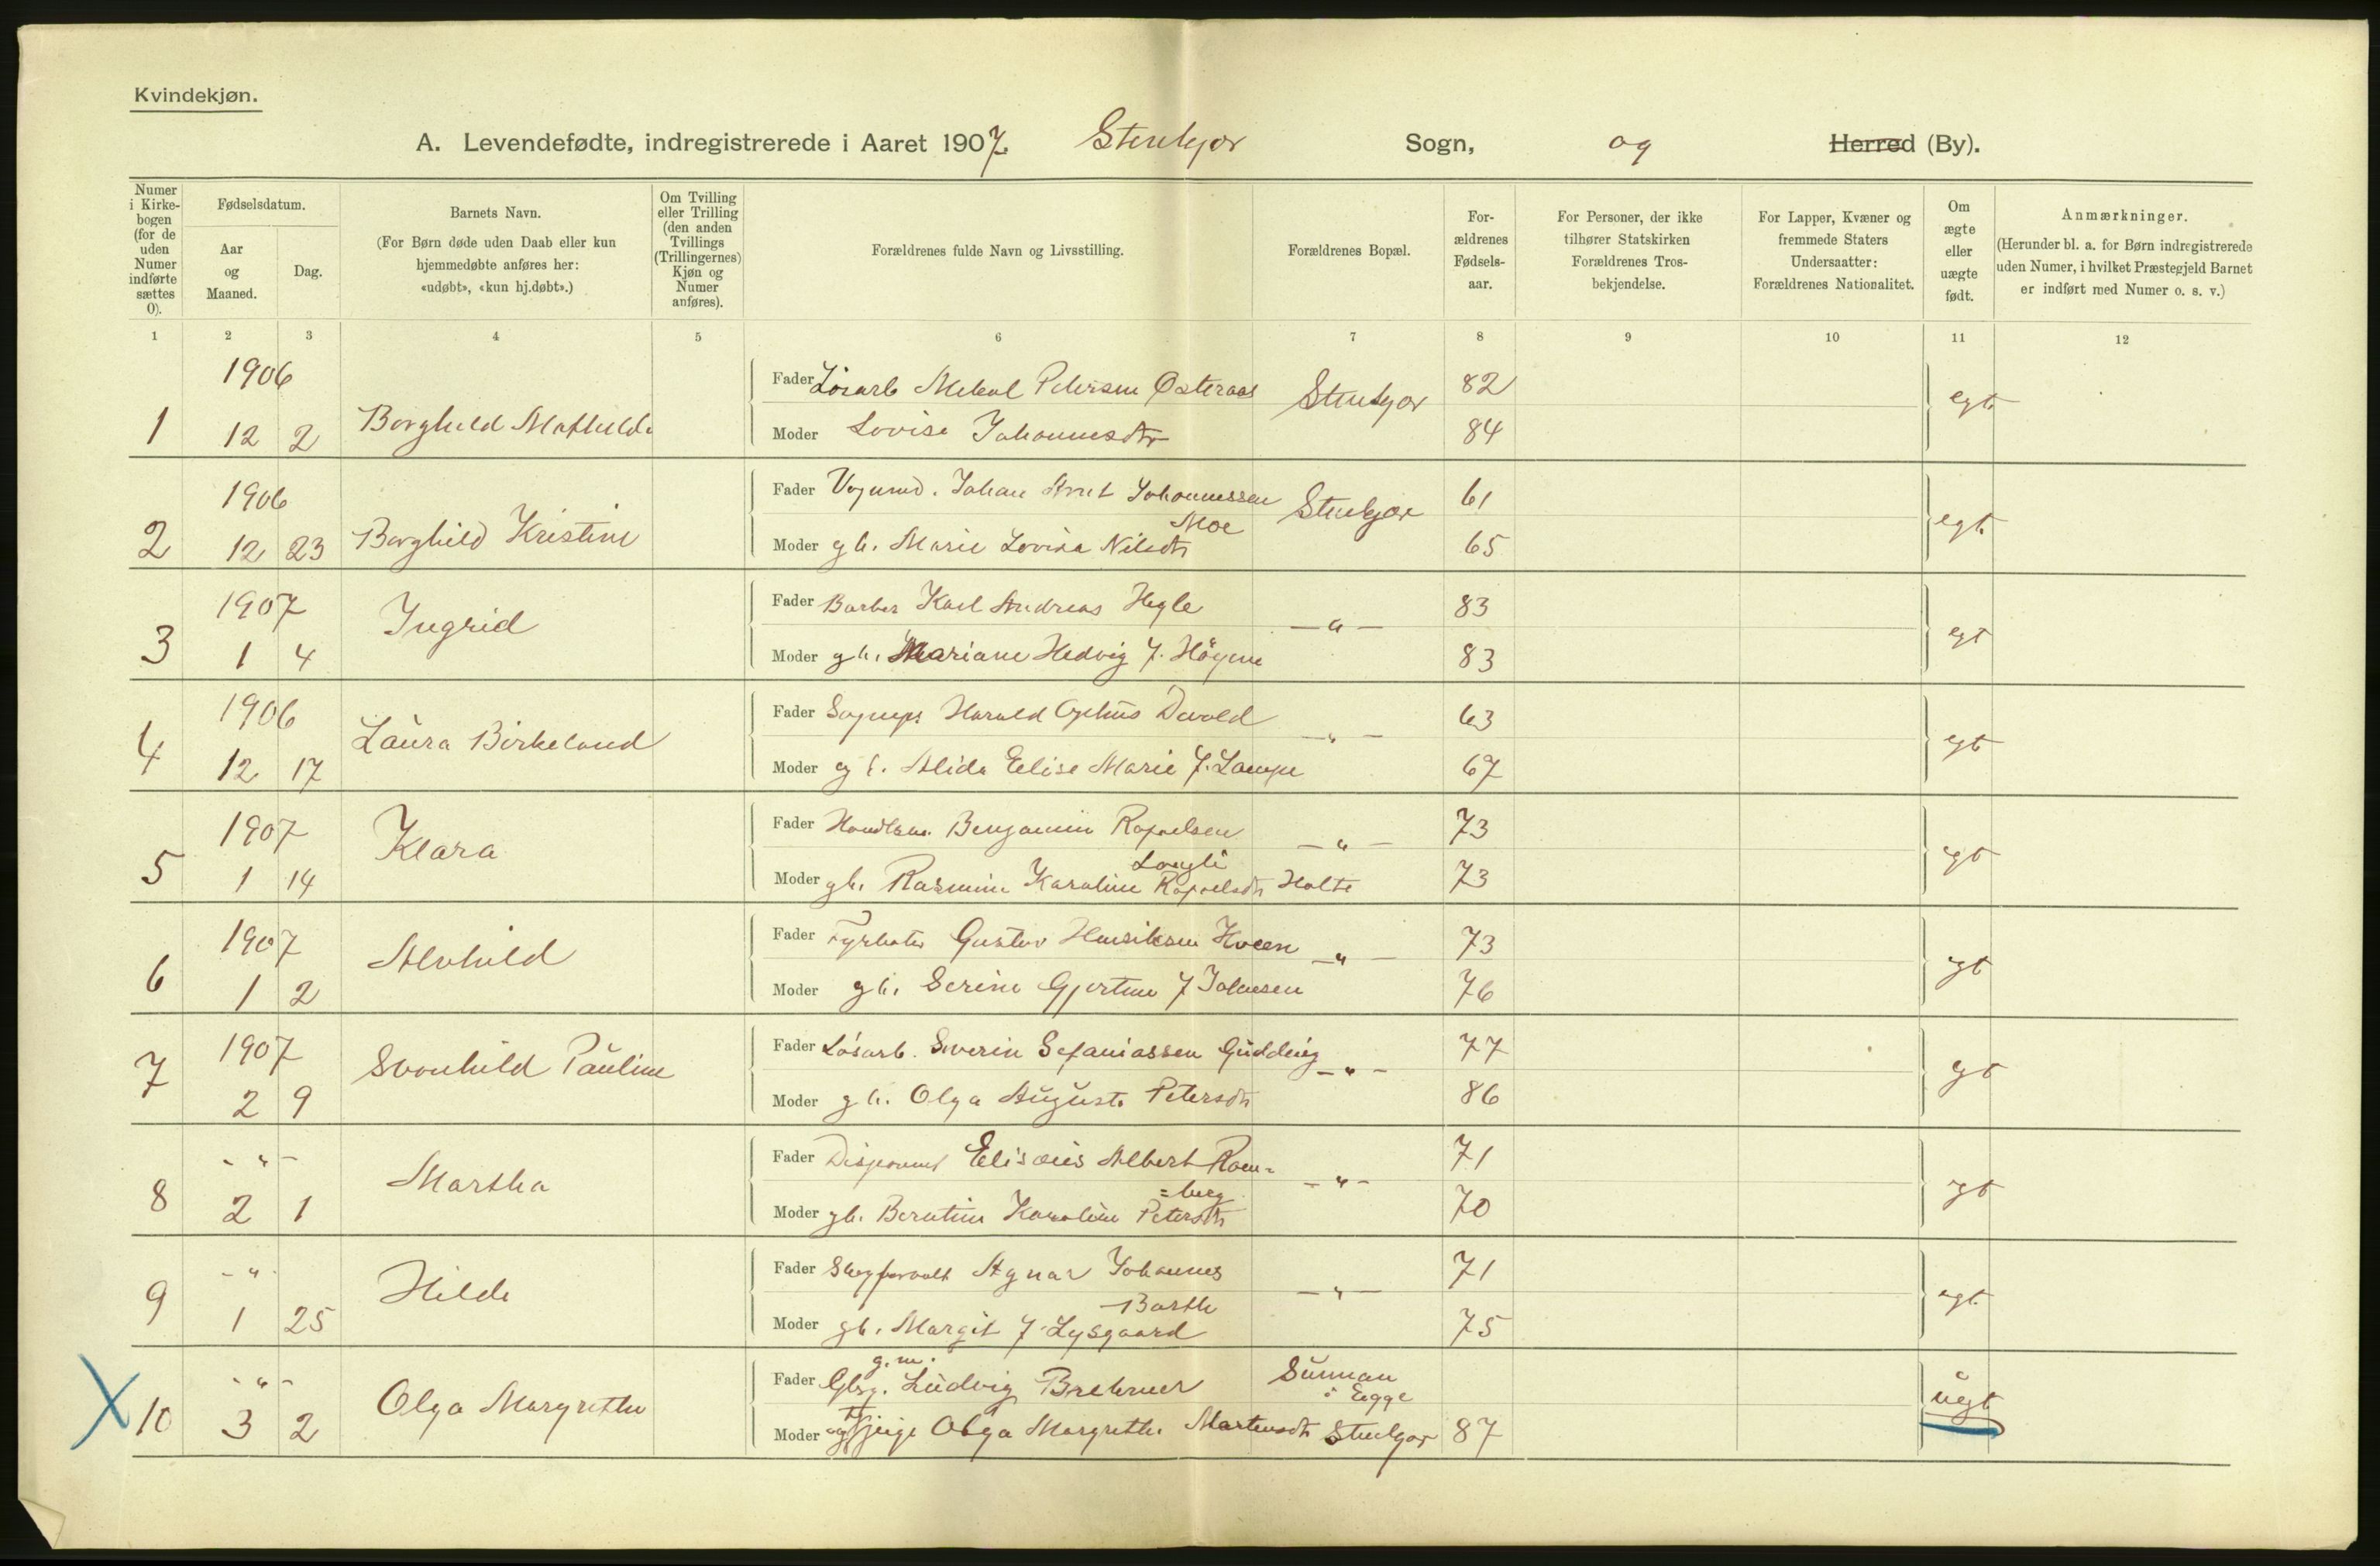 Kvindekjøn.
A. Levendefødte, indregistrerede i Aaret 1907. Stenkjær Sogn, og Herred (By).
Numer i Kirke-bogen (for de uden Numer indførte sættes 0).
Fødselsdatum.
Aar og Maaned.
Dag.
Barnets Navn.
(For Børn døde uden Daab eller kun hjemmedøbte anføres her: «udøbt», «kun hj.døbt».)
Om Tvilling eller Trilling (den anden Tvillings (Trillingernes) Kjøn og Numer anføres).
Forældrenes fulde Navn og Livsstilling.
Forældrenes Bopæl.
For-ældrenes Fødsels-aar.
For Personer, der ikke tilhører Statskirken Forældrenes Tros-bekjendelse.
For Lapper, Kvæner og fremmede Staters Undersaatter: Forældrenes Nationalitet.
Om ægte eller uægte født.
Anmærkninger.
(Herunder bl. a. for Børn indregistrerede uden Numer, i hvilket Præstegjeld Barnet er indført med Numer o. s. v.)
1 2 3 4 5 6 7 8 9 10 11 12
1906
Fader Løsarb Mikal Petersen Østeraas Stenkjær 82 egt.
1 12 2 Borghild Mathilde
Moder Lovise Johannesdtr 84
1906
Fader Johan Arnt Johannessen Stenkjær 61 egt.
Moe
2 12 23 Borghild Kristine
Moder gh. Marie Lovisa Nilsdtr 65
1907
Fader Barber Karl Andreas Hegle — " — 83 egt
3 1 4 Ingrid
Moder gh. Mariane Hedvig f. Höyem 83
1906
Fader Harald Ophus Davold — " — 63 egt
4 12 17 Laura Birkeland
Moder gh. Alida Elise Marie f. Lampe 67
1907
Fader Handlsm. Benjamin Rafaelsen — " — 73 egt
Langli
5 1 14 Klara
Moder gh. Rasmine Karoline Rafaelsdtr Holte 73
1907
Fader Fyrbøter Gustav Henriksen Hveen — " — 73 egt
6 1 2 Alvhild
Moder gh. Serine Gjertine f Johnsen 76
1907
Fader Løsarb. Severin Sefaniassen Gudding — " — 77 egt
7 2 9 Svanhild Pauline
Moder gh. Olga Augusta Petersdtr 86
- " -
Fader Disponent Elisæus Albert Rom- — " — 71 egt
=berg
8 2 1 Martha
Moder gh. Berntine Karoline Petersdtr 70
- " -
Fader Skogforvalt Agnar Johannes — " — 71 egt.
Barth
9 1 25 Hilde
Moder gh. Margit f. Lysgaard 75
g. m.
- " -
Fader Gbsg. Ludvig Brehmer Sunnan i Egge uegt
X 10 3 2 Olga Margrethe
Moder ug Tj.pige Olga Margrethe Martensdtr Stenkjær 87